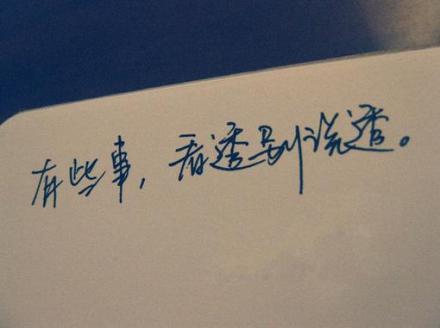 有些事，看透别说透。